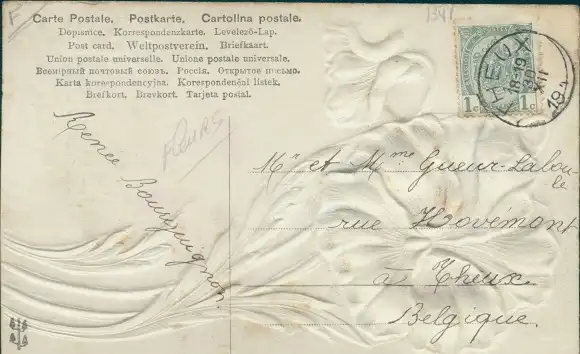 F
Carte Postale. Postkarte. Cartolina postale.
Dopisnice. Korrespondenzkarte. Levelező-Lap.
Post card. Weltpostverein. Briefkaart.
Union postale universelle. Unione postale universale.
Всемірный почтовый союзъ. Россія. Открытое письмо.
Karta korespondencyjna. Korespondenční lístek.
Brefkort. Brevkort. Tarjeta postal.
1341
THEUX
18-19
30
XII
191
1c 1c
FLEURS
Renée Bourguignon.
Mr et Mme Gueur-Labou-
le
rue Hovémont
à Theux
Belgique.